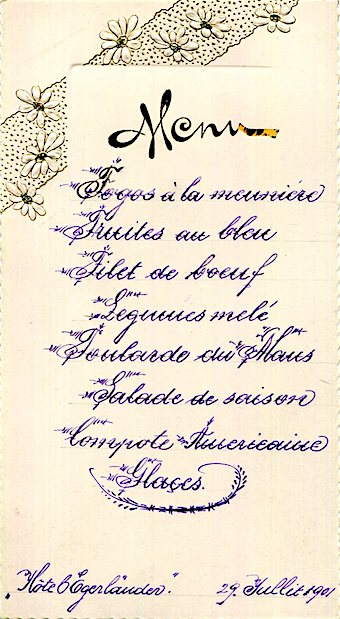 Menu
Fogos à la meunière
Truites au bleu
Filet de boeuf
Legueues melé
Poularde du Mans
Salade de saison
Compote Americaine
Glaçes.
„Hôtel Egerländer". 29 Juillit 1901